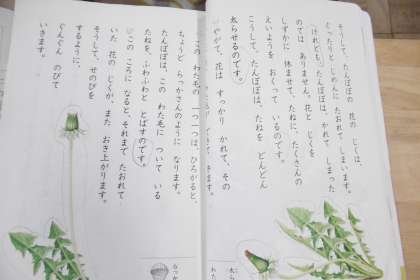 そうして、たんぽぽの 花の じくは、
ぐったりと じめんに たおれて しまいます。
けれども、たんぽぽは、かれて しまった
のでは ありません。花と じくを
しずかに 休ませて、たねに、たくさんの
えいようを おくって いるのです。
こうして、たんぽぽは、たねを どんどん
太らせるのです。
やがて、花は すっかり かれて、その
この わた毛の 一つ一つは、ひろがると、
ちょうど らっかさんのように なります。
たんぽぽは、この わた毛に ついて いる
たねを、ふわふわと とばすのです。
この ころに なると、それまで たおれて
いた 花の じくが、また おき上がります。
そうして、せのびを
するように、
ぐんぐん のびて
いきます。